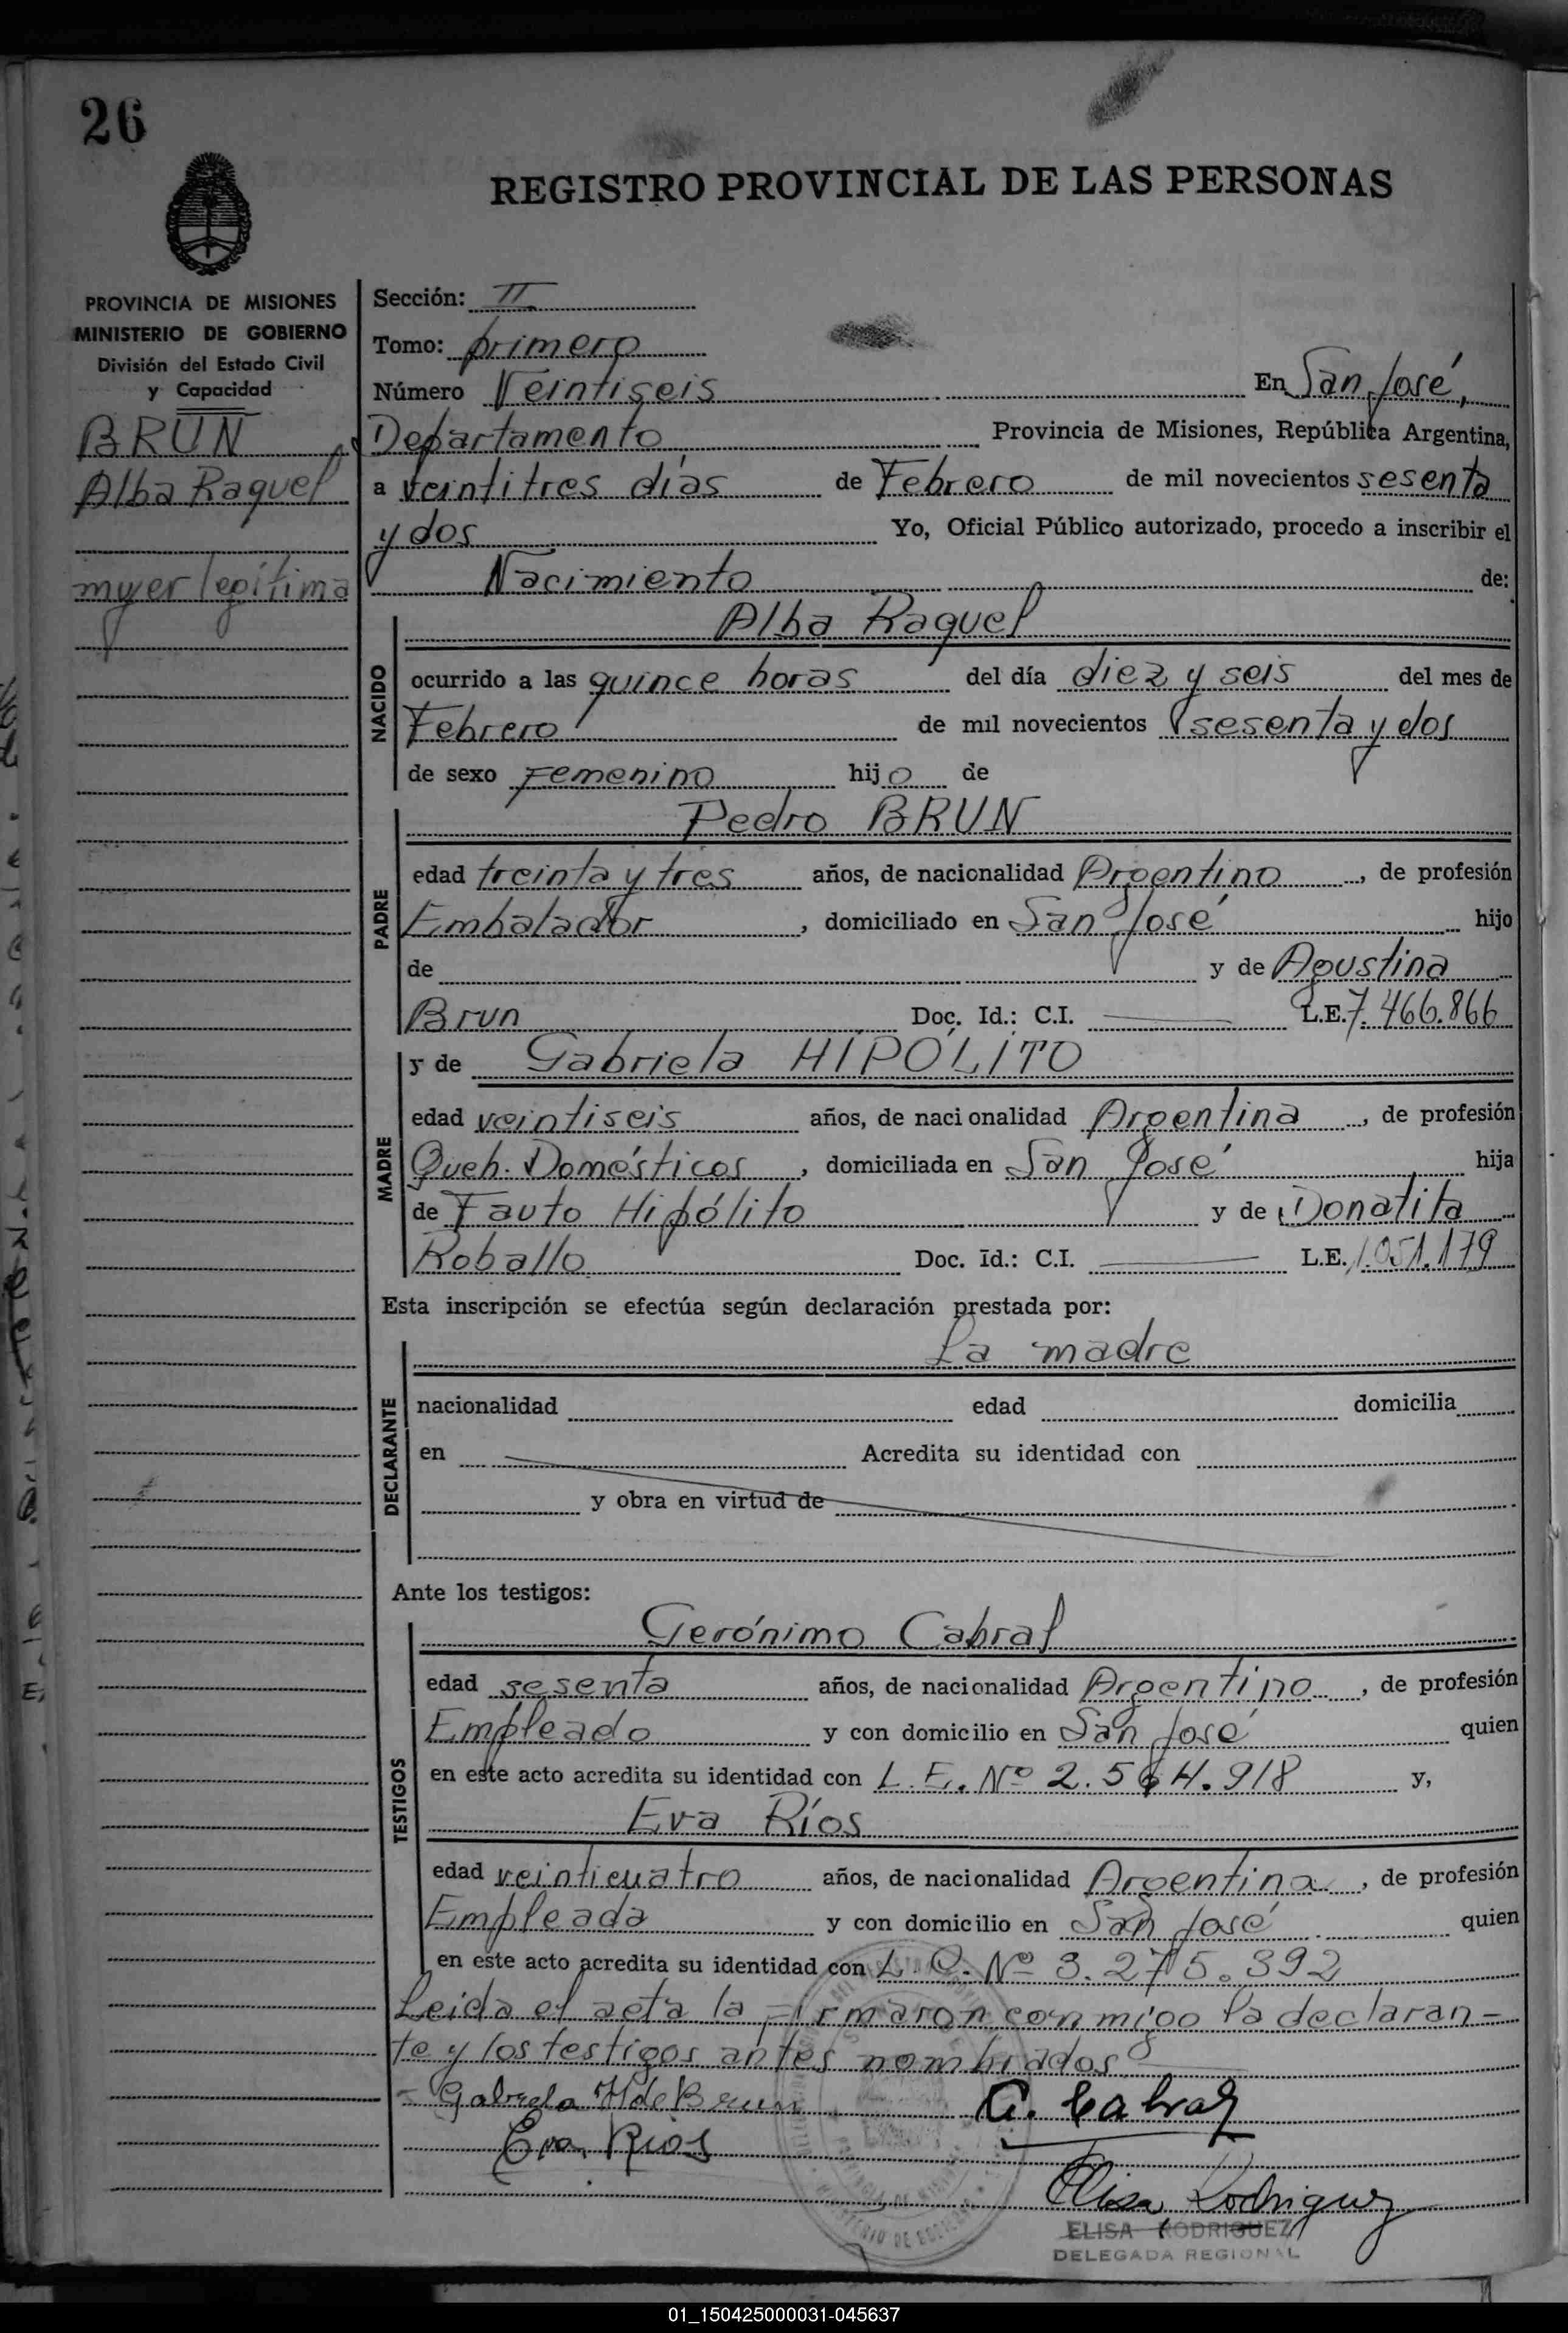 26
REGISTRO PROVINCIAL DE LAS PERSONAS
PROVINCIA DE MISIONES
MINISTERIO DE GOBIERNO
División del Estado Civil
y Capacidad
BRUN
Alba Raquel
mujer legítima
Sección: II
Tomo: primero
Número Veintiseis En San José,
Departamento Provincia de Misiones, República Argentina,
a veintitres días de Febrero de mil novecientos sesenta
y dos Yo, Oficial Público autorizado, procedo a inscribir el
Nacimiento de:
NACIDO
Alba Raquel
ocurrido a las quince horas del día diez y seis del mes de
Febrero de mil novecientos sesenta y dos
de sexo Femenino hijo de
PADRE
Pedro BRUN
edad treinta y tres años, de nacionalidad Argentino, de profesión
Embalador, domiciliado en San José hijo
de y de Agustina
Brun Doc. Id.: C.I. L.E. 7.466.866
MADRE
y de Gabriela HIPÓLITO
edad veintiseis años, de nacionalidad Argentina, de profesión
Queh. Domésticos, domiciliada en San José hija
de Fauto Hipólito y de Donatita
Roballo Doc. Id.: C.I. L.E. 1.051.179
Esta inscripción se efectúa según declaración prestada por:
DECLARANTE
La madre
nacionalidad edad domicilia
en Acredita su identidad con
y obra en virtud de
Ante los testigos:
TESTIGOS
Gerónimo Cabral
edad sesenta años, de nacionalidad Argentino, de profesión
Empleado y con domicilio en San José quien
en este acto acredita su identidad con L.E. Nº 2.564.918 y,
Eva Ríos
edad veinticuatro años, de nacionalidad Argentina, de profesión
Empleada y con domicilio en San José quien
en este acto acredita su identidad con L.C. Nº 3.275.392
Leida el acta la firmaron conmigo la declaran-
te y los testigos antes nombrados
Gabriela H de Brun G. Cabral
Eva Rios
Elisa Rodriguez
ELISA RODRIGUEZ
DELEGADA REGIONAL
01_150425000031-045637